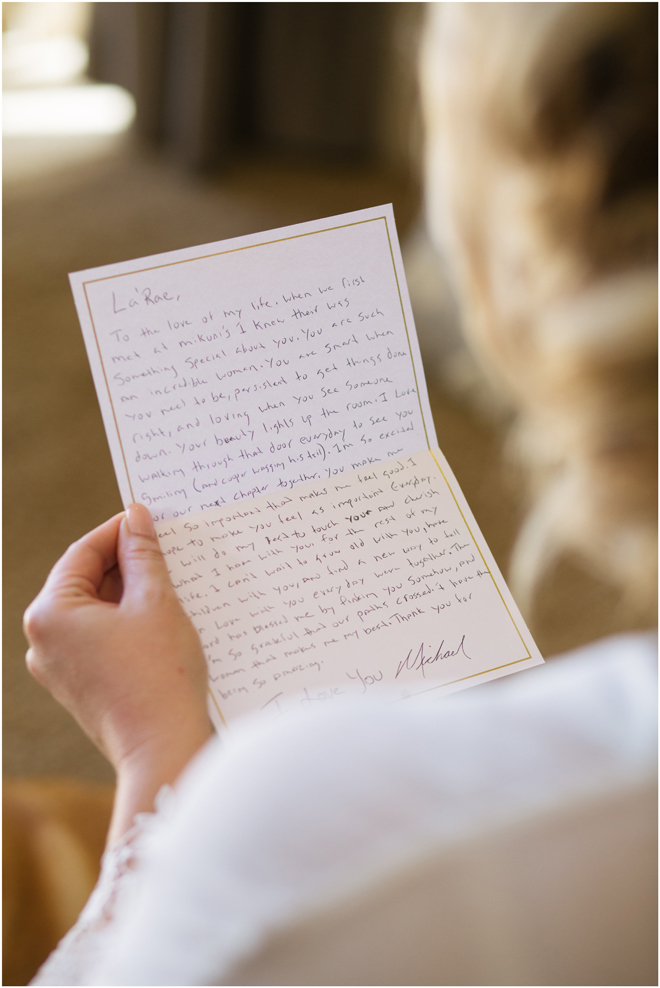 La'Rae,
To the love of my life, when we first
met at mikuni's I knew their was
Something Special about you. You are such
an incredible woman. You are smart when
you need to be, persistent to get things done
right, and loving when you see someone
down. Your beauty lights up the room. I Love
walking through that door everyday to see you
Smiling (and cooper wagging his tail). Im so excited
for our next chapter together. You make me
feel So important that makes me feel good. I
hope to make you feel as important Everyday.
I will do my best to touch your and cherish
what I have with you for the rest of my
life. I can't wait to grow old with you, have
children with you, and find a new way to fall
in Love with you everyday were together. The
Lord has blessed me by finding you Somehow, and
I'm So grateful that our paths crossed. I have the
woman that makes me my best. Thank you for
being So amazing.
I Love You Michael